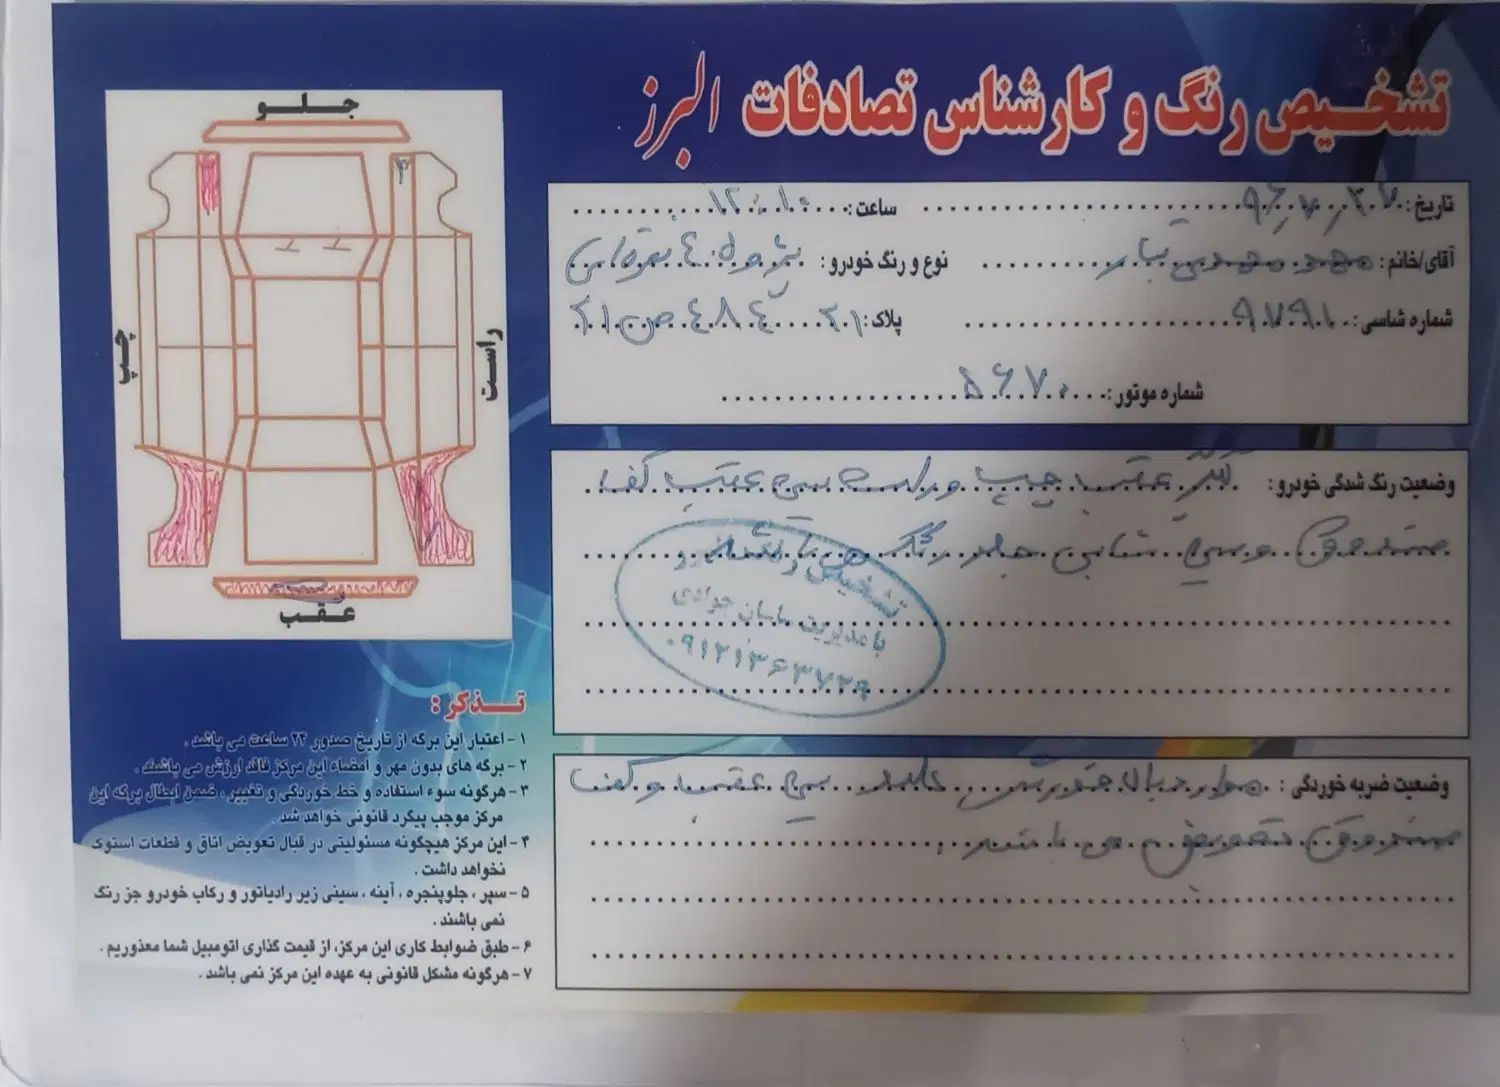 تشخیص رنگ و کارشناس تصادفات البرز
جلو
چپ
راست
عقب
تاریخ: ۹۶,۷,۲۷
ساعت: ۱۲:۱۰
آقای/خانم: محمد مهدی تبار
نوع و رنگ خودرو: پژو ۴۰۵ نقره‌ای
شماره شاسی: ۹۷۹۱
پلاک: ۲۱ ۴۸۴ ص ۲۱
شماره موتور: ۵۶۷۰
وضعیت رنگ شدگی خودرو: گلگیر عقب چپ و راست سینی عقب کف
صندوق و سینی جلو رنگ می باشد
تشخیص رنگ خودرو
با مدیریت ساسان جوادی
۰۹۱۲۱۳۶۳۷۲۹
وضعیت ضربه خوردگی: عقب و کف
صندوق تعویض می باشد.
تـذکر:
۱- اعتبار این برگه از تاریخ صدور ۲۴ ساعت می باشد.
۲- برگه های بدون مهر و امضاء این مرکز فاقد ارزش می باشند.
۳- هرگونه سوء استفاده و خط خوردگی و تغییر، ضمن ابطال برگه این
مرکز موجب پیگرد قانونی خواهد شد.
۴- این مرکز هیچگونه مسئولیتی در قبال تعویض اتاق و قطعات استوک
نخواهد داشت.
۵- سپر، جلوپنجره، آینه، سینی زیر رادیاتور و رکاب خودرو جز رنگ
نمی باشند.
۶- طبق ضوابط کاری این مرکز، از قیمت گذاری اتومبیل شما معذوریم.
۷- هرگونه مشکل قانونی به عهده این مرکز نمی باشد.